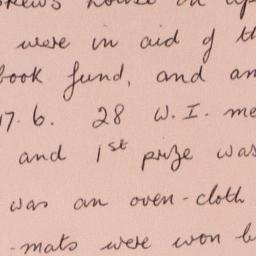 were in aid of
book fund, and an
17.6. 28 W.I. me
and 1st prize was
was an oven-cloth
-mats were won b